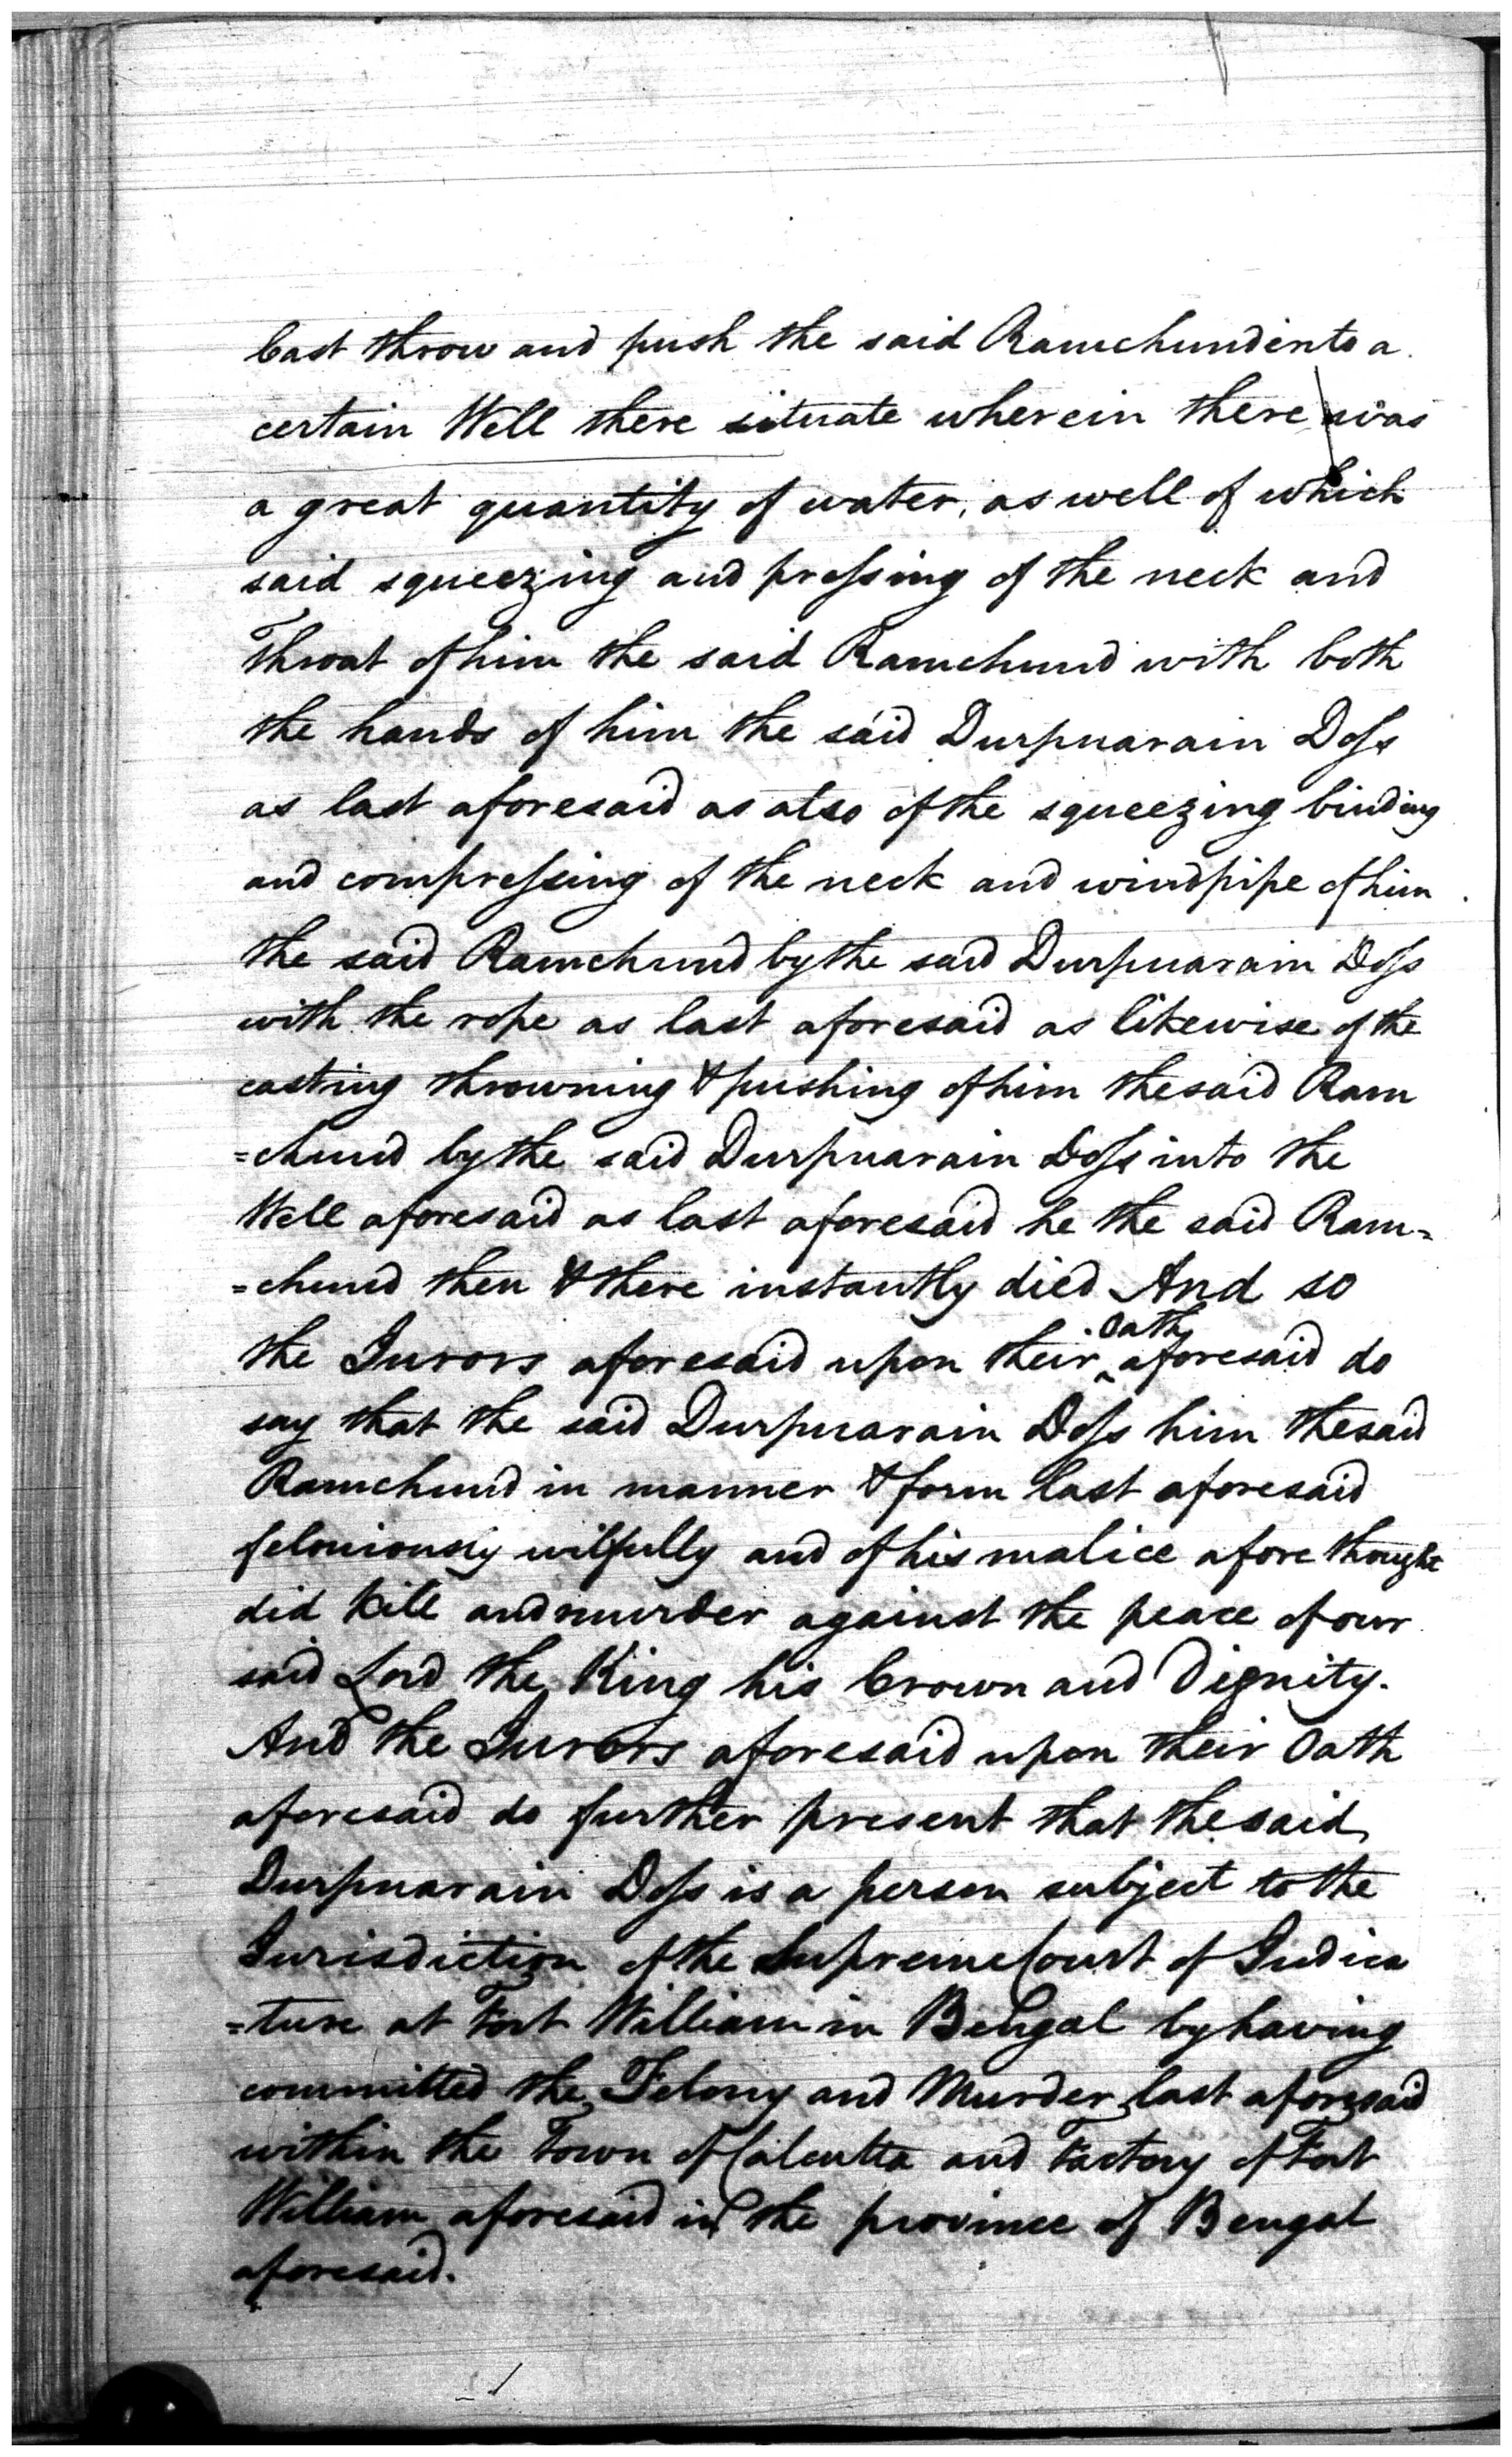 Cast throw and push the said Ramchund into a
certain Well there situate wherein there was
a great quantity of water, as well of which
said squeezing and pressing of the neck and
Throat of him the said Ramchund with both
the hands of him the said Durpnarain Doss
as last aforesaid as also of the squeezing binding
and compressing of the neck and windpipe of him
the said Ramchund by the said Durpnarain Doss
with the rope as last aforesaid as likewise of the
casting throwning & pushing of him the said Ram
=chund by the said Durpnarain Doss into the
Well aforesaid as last aforesaid he the said Ram=
=chund then & there instantly died And so
the Jurors aforesaid upon their Oath aforesaid do
say that the said Durpnarain Doss him the said
Ramchund in manner & form last aforesaid
feloniously wilfully and of his malice afore thought
did kill and murder against the peace of our
said Lord the King his Crown and Dignity.
And the Jurors aforesaid upon their Oath
aforesaid do further present that the said
Durpnarain Doss is a person subject to the
Jurisdiction of the Supreme Court of Judica
=ture at Fort William in Bengal by having
committed the Felony and Murder last aforesaid
within the Town of Calcutta and Factory of Fort
William aforesaid in the province of Bengal
aforesaid.